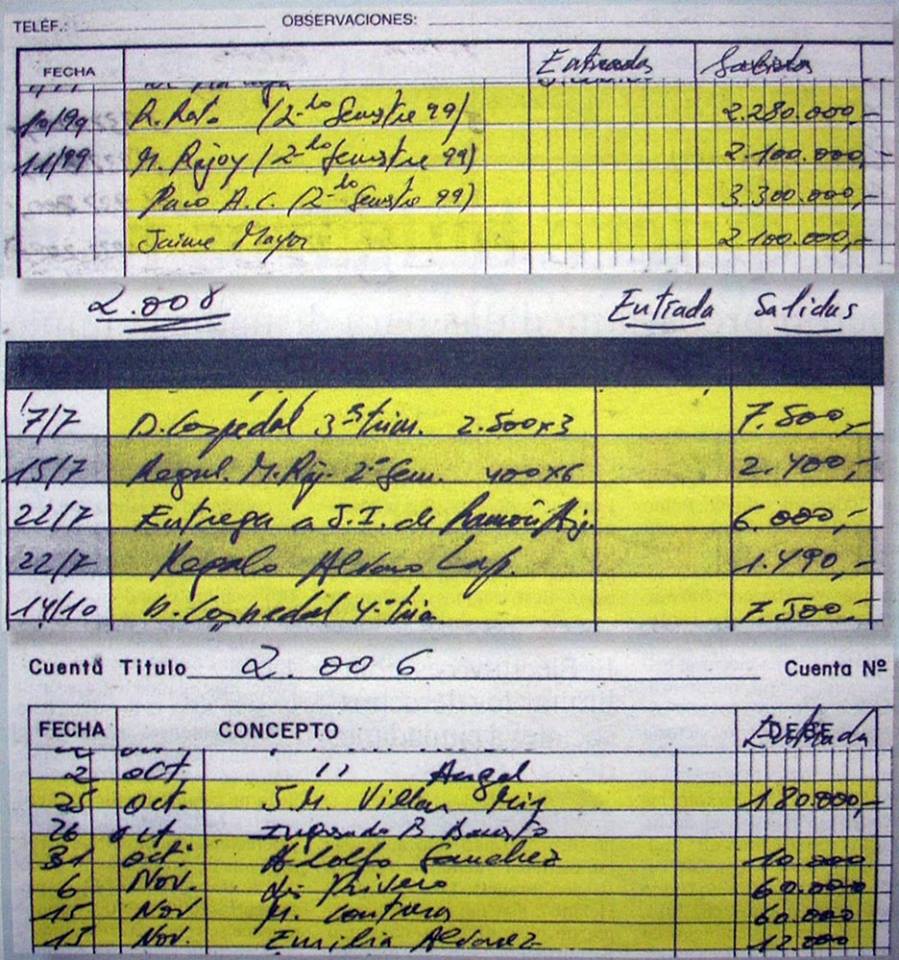 TELÉF.: OBSERVACIONES:
FECHA Entradas Salidas
10/99 R. Rato (2do Semestre 99) 2.280.000,-
11/99 M. Rajoy (2do Semestre 99) 2.100.000,-
Paco A.C. (2do Semestre 99) 3.300.000,-
Jaime Mayor 2.100.000,-
2.008 Entrada Salidas
7/7 D. Cospedal 3er trim. 2.500x3 7.500,-
15/7 M. Raj. 2º Sem. 400x6 2.400,-
22/7 Entrega a J.I. de 6.000,-
22/7 Regalo Alvaro Lap. 1.490,-
14/10 D. Cospedal 4º trim. 7.500,-
Cuenta Título 2.006 Cuenta Nº
FECHA CONCEPTO DEBE Entrada
2 oct. '' Angel
25 oct. J.M. Villar Mir 180.000,-
26 oct Ingresado B.
31 oct. Adolfo Sanchez 10.000
6 Nov. Rivero 60.000
15 Nov M. Contreras 60.000
15 Nov. Emilia Alvarez 12.000